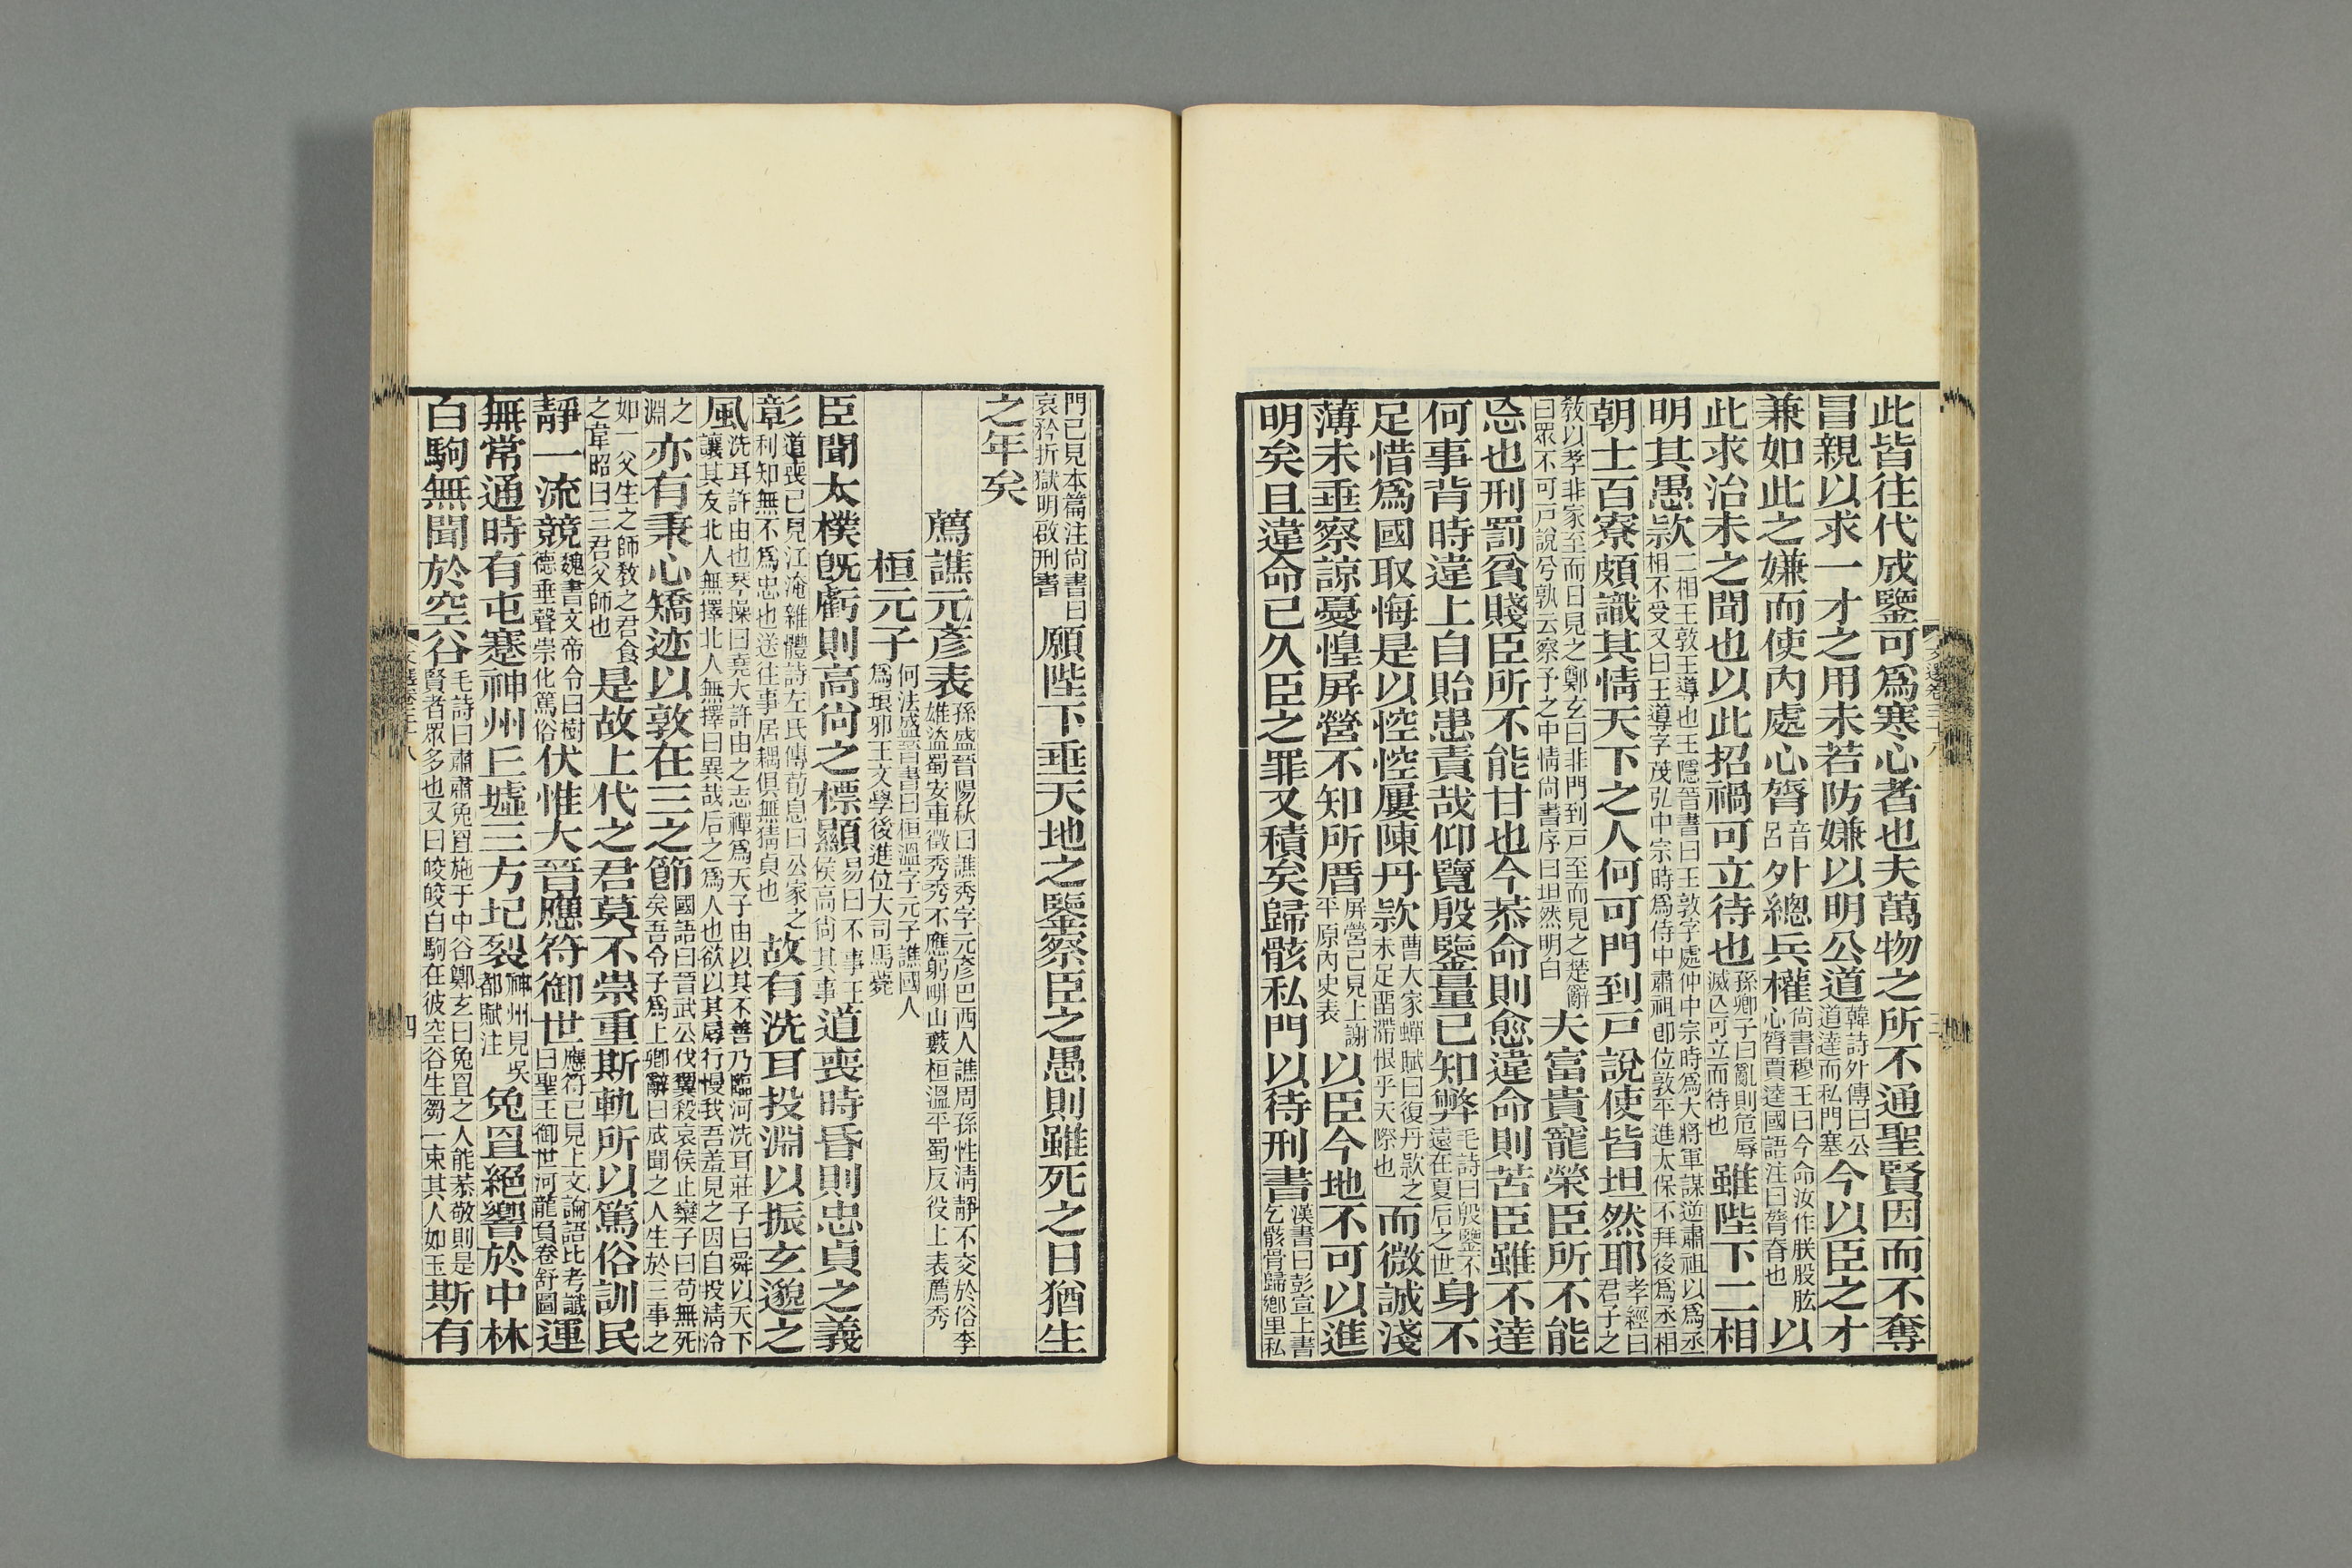 此皆往代成鑒可爲寒心者也夫萬物之所不通聖賢因而不奪
冒親以求一才之用未若防嫌以明公道韓詩外傳曰公道達而私門塞今以臣之才
兼如此之嫌而使內處心膂音呂外總兵權尚書穆王曰今命汝作朕股肱心膂賈逵國語注曰膂脊也以
此求治未之聞也以此招禍可立待也孫卿子曰亂則危辱滅亡可立而待也雖陛下二相
明其愚款二相王敦王導也王隱晉書曰王敦字處仲中宗時爲大將軍謀逆肅祖以爲丞相不受又曰王導字茂弘中宗時爲侍中肅祖卽位敦平進太保不拜後爲丞相
朝士百寮頗識其情天下之人何可門到戸說使皆坦然耶孝經曰君子之
敎以孝非家至而日見之鄭玄曰非門到戸至而見之楚辭曰眾不可戸說兮孰云察予之中情尚書序曰坦然明白夫富貴寵榮臣所不能
忘也刑罰貧賤臣所不能甘也今恭命則愈違命則苦臣雖不達
何事背時違上自貽患責哉仰覽殷鑒量已知弊毛詩曰殷鑒不遠在夏后之世身不
足惜爲國取悔是以悾悾屢陳丹款曹大家蟬賦曰復丹款之未足畱滯恨乎天際也而微誠淺
薄未垂察諒憂惶屏營不知所厝屏營已見上謝平原內史表以臣今地不可以進
明矣且違命已久臣之罪又積矣歸骸私門以待刑書漢書曰彭宣上書乞骸骨歸鄕里私
門已見本篇注尚書曰哀矜折獄明啟刑書願陛下垂天地之鑒察臣之愚則雖死之日猶生
之年矣
薦譙元彥表孫盛晉陽秋曰譙秀字元彥巴西人譙周孫性淸靜不交於俗李雄盜蜀安車徵秀秀不應躬耕山藪桓溫平蜀反役上表薦秀
桓元子何法盛晉書曰桓溫字元子譙國人爲琅邪王文學後進位大司馬薨
臣聞太樸旣虧則高尚之標顯易曰不事王侯高尚其事道喪時昏則忠貞之義
彰道喪已見江淹雜體詩左氏傳荀息曰公家之利知無不爲忠也送往事居耦俱無猜貞也故有洗耳投淵以振玄邈之
風洗耳許由也琴操曰堯大許由之志禪爲天子由以其不善乃臨河洗耳莊子曰舜以天下讓其友北人無擇北人無擇曰異哉后之爲人也欲以其辱行慢我吾羞見之因自投淸泠
之淵亦有秉心矯迹以敦在三之節國語曰晉武公伐翼殺哀侯止欒子曰苟無死矣吾令子爲上卿辭曰成聞之人生於三事之
如一父生之師敎之君食之韋昭曰三君父師也是故上代之君莫不崇重斯軌所以篤俗訓民
靜一流競魏書文帝令曰樹德垂聲崇化篤俗伏惟大晉應符御世應符已見上文論語比考讖曰聖王御世河龍負卷舒圖運
無常通時有屯蹇神州丘墟三方圮裂神州見吳都賦注兔罝絕響於中林
白駒無聞於空谷毛詩曰肅肅兔罝施于中谷鄭玄曰兔罝之人能恭敬則是賢者眾多也又曰皎皎白駒在彼空谷生芻一束其人如玉斯有
文選卷三十八
四